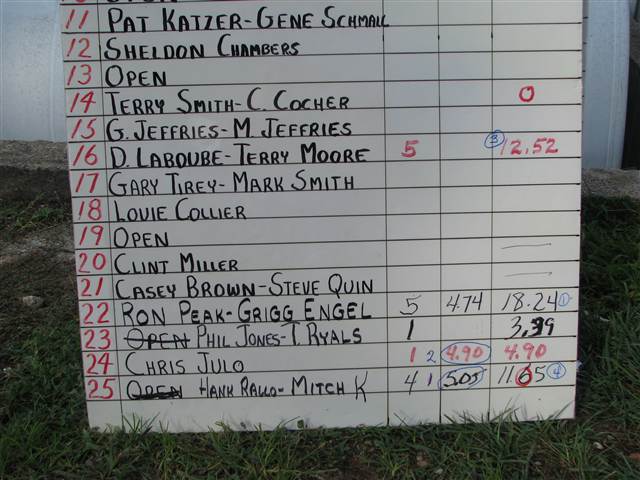 11 PAT KATZER-GENE SCHMALL
12 SHELDON CHAMBERS
13 OPEN
14 TERRY SMITH-C. COCHER 0
15 G. JEFFRIES-M. JEFFRIES
16 D. LABOUBE-TERRY MOORE 5 3 12.52
17 GARY TIREY-MARK SMITH
18 LOUIE COLLIER
19 OPEN
20 CLINT MILLER
21 CASEY BROWN-STEVE QUIN
22 RON PEAK-GRIGG ENGEL 5 4.74 18.24 1
23 OPEN PHIL JONES-T. RYALS 1
24 CHRIS JULO 1 2 4.90 4.90
25 OPEN HANK RALLO-MITCH K 4 1 5.05 11.65 4